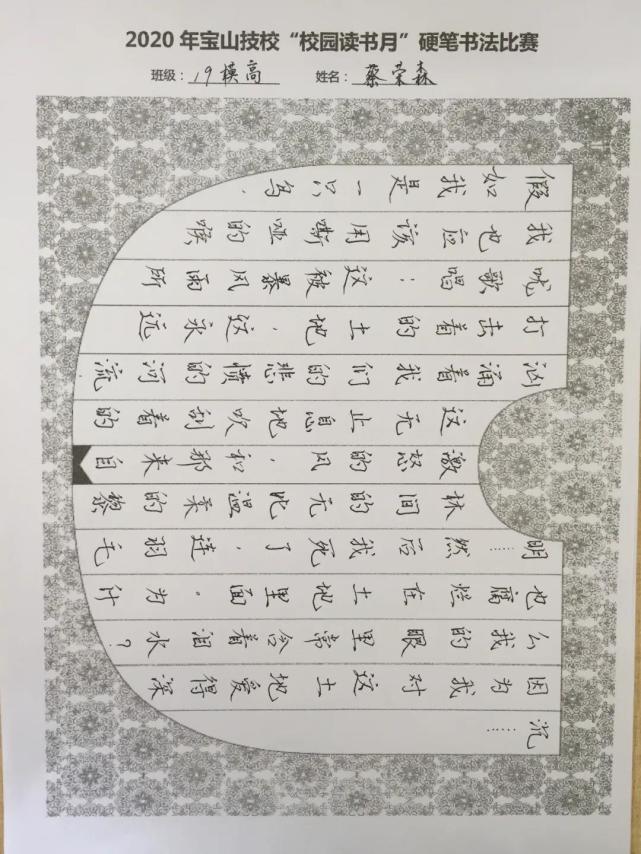 2020年宝山技校“校园读书月”硬笔书法比赛
班级：19模高 姓名：蔡荣森
假如我是一只鸟，
我也应该用嘶哑的喉
咙歌唱：这被暴风雨所
打击着的土地，这永远
汹涌着我们的悲愤的河流，
这无止息地吹刮着的
激怒的风，和那来自
林间的无比温柔的黎
明……然后我死了，连羽毛
也腐烂在土地里面。为什
么我的眼里常含着泪水？
因为我对这土地爱得深
沉……